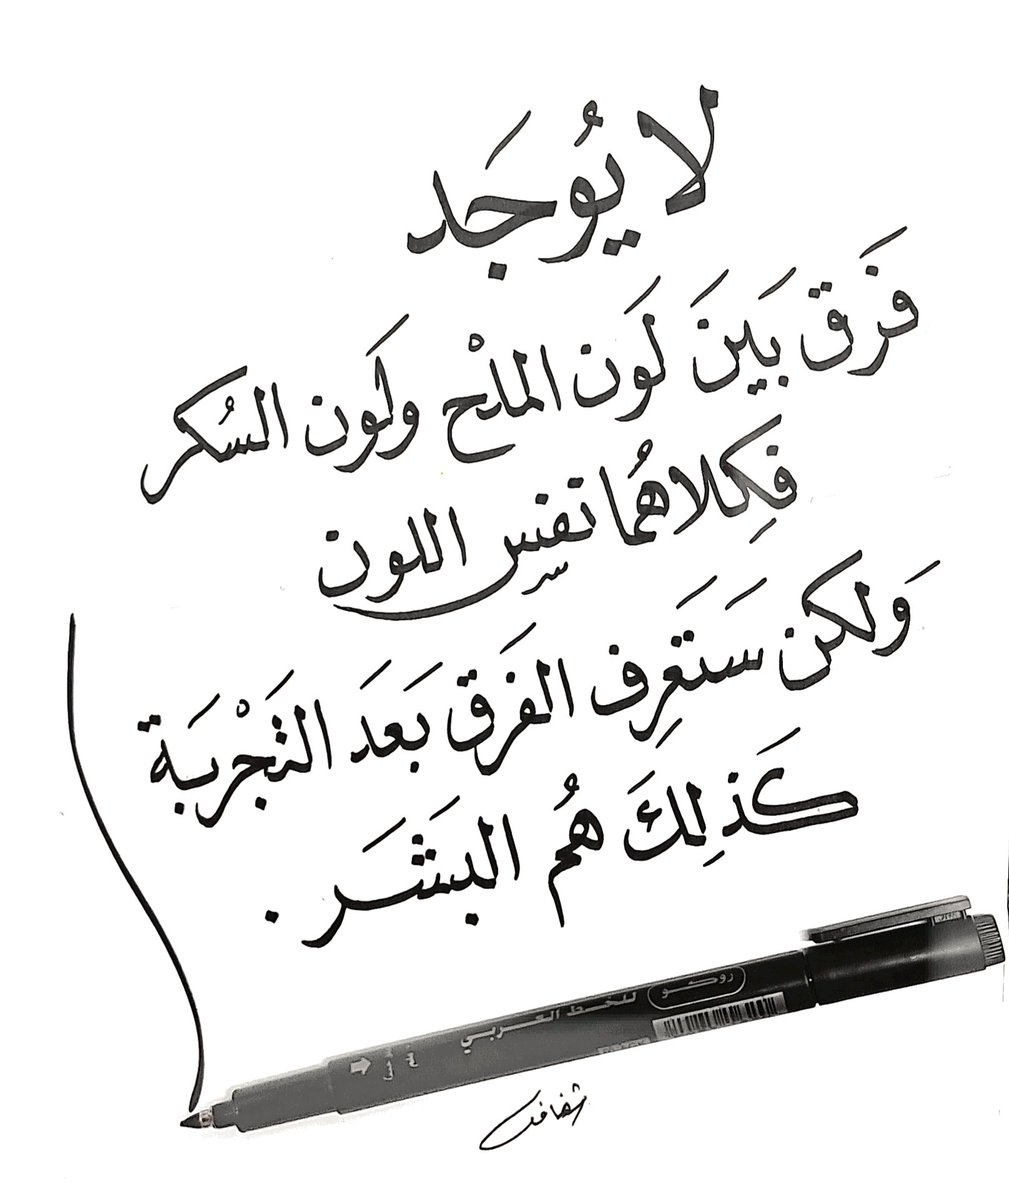 لا يُوجَد
فَرَق بَينَ لَون الملْح ولَون السُكر
فَكِلاهُما نفس اللون
وَلكن سَتَعَرِف الفَرَق بَعدَ التَجْرِبَة
كَذلِكَ هُم البَشَر .
روكو
للخط العربي